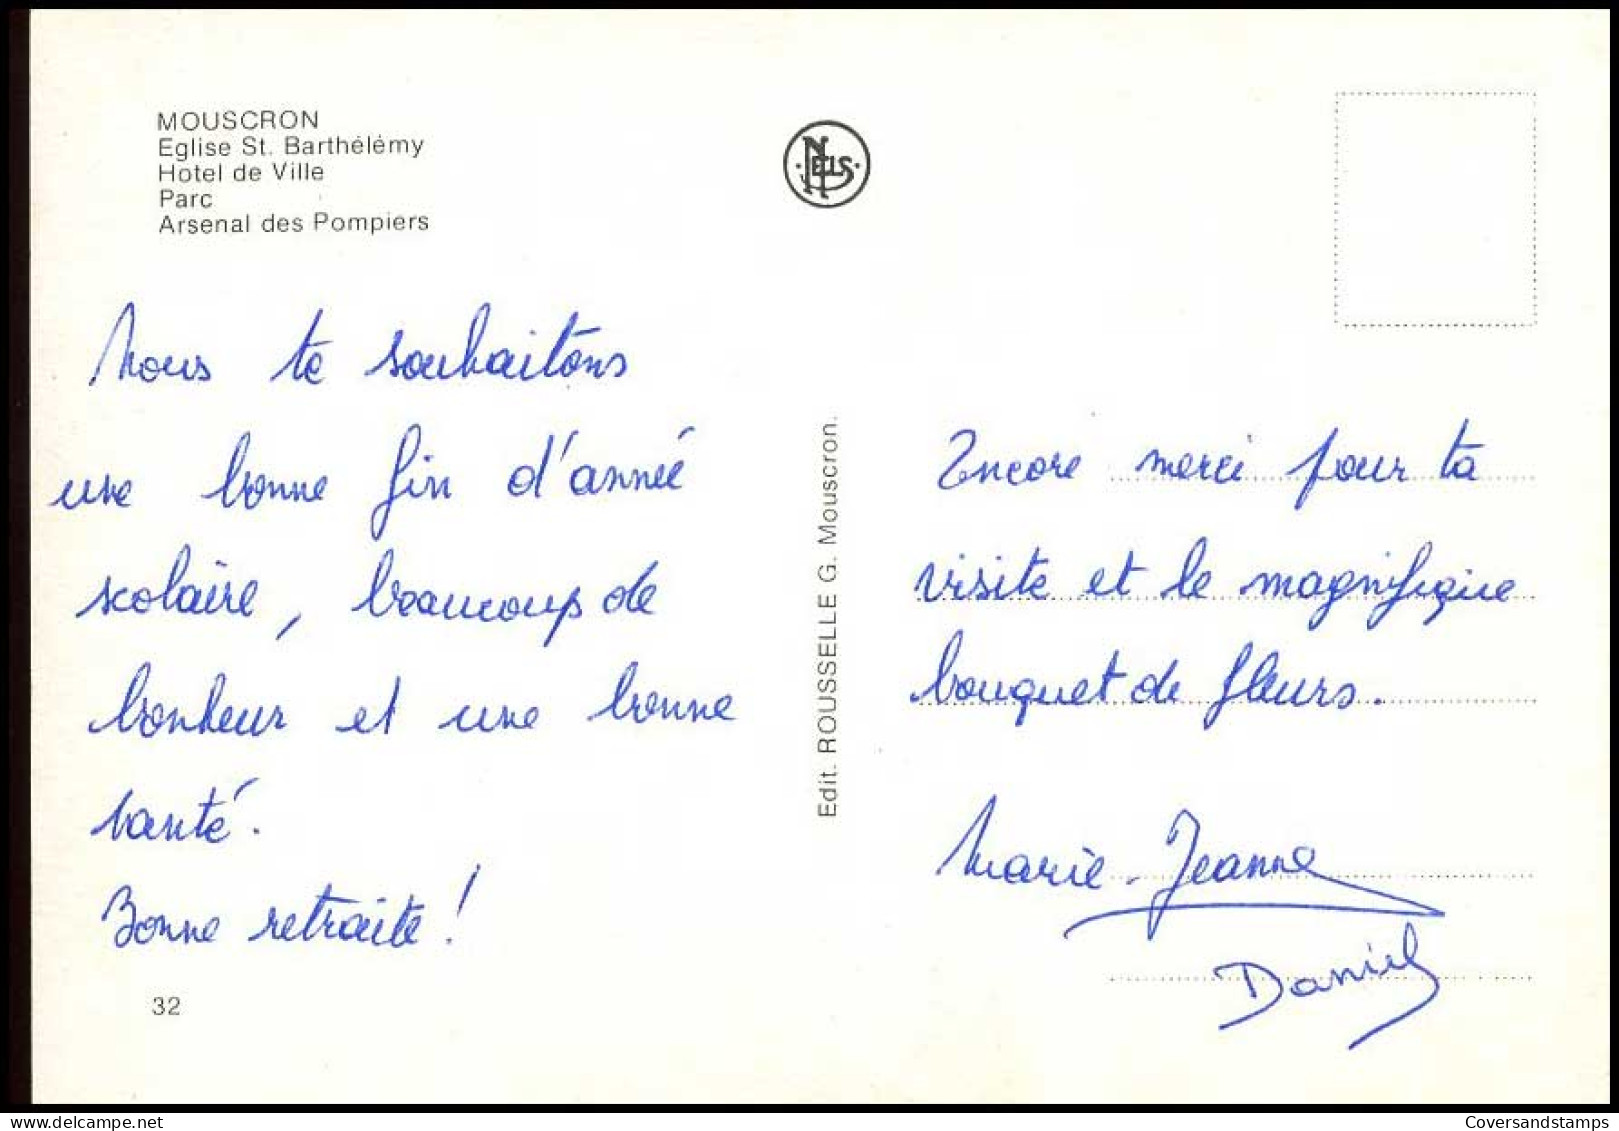 MOUSCRON
Eglise St. Barthélémy
Hotel de Ville
Parc
Arsenal des Pompiers
NELS
Nous te souhaitons
une bonne fin d'année
scolaire, beaucoup de
bonheur et une bonne
santé.
Bonne retraite !
32
Edit. ROUSSELLE G. Mouscron.
Encore merci pour ta
visite et le magnifique
bouquet de fleurs.
Marie-Jeanne
Daniel
Coversandstamps